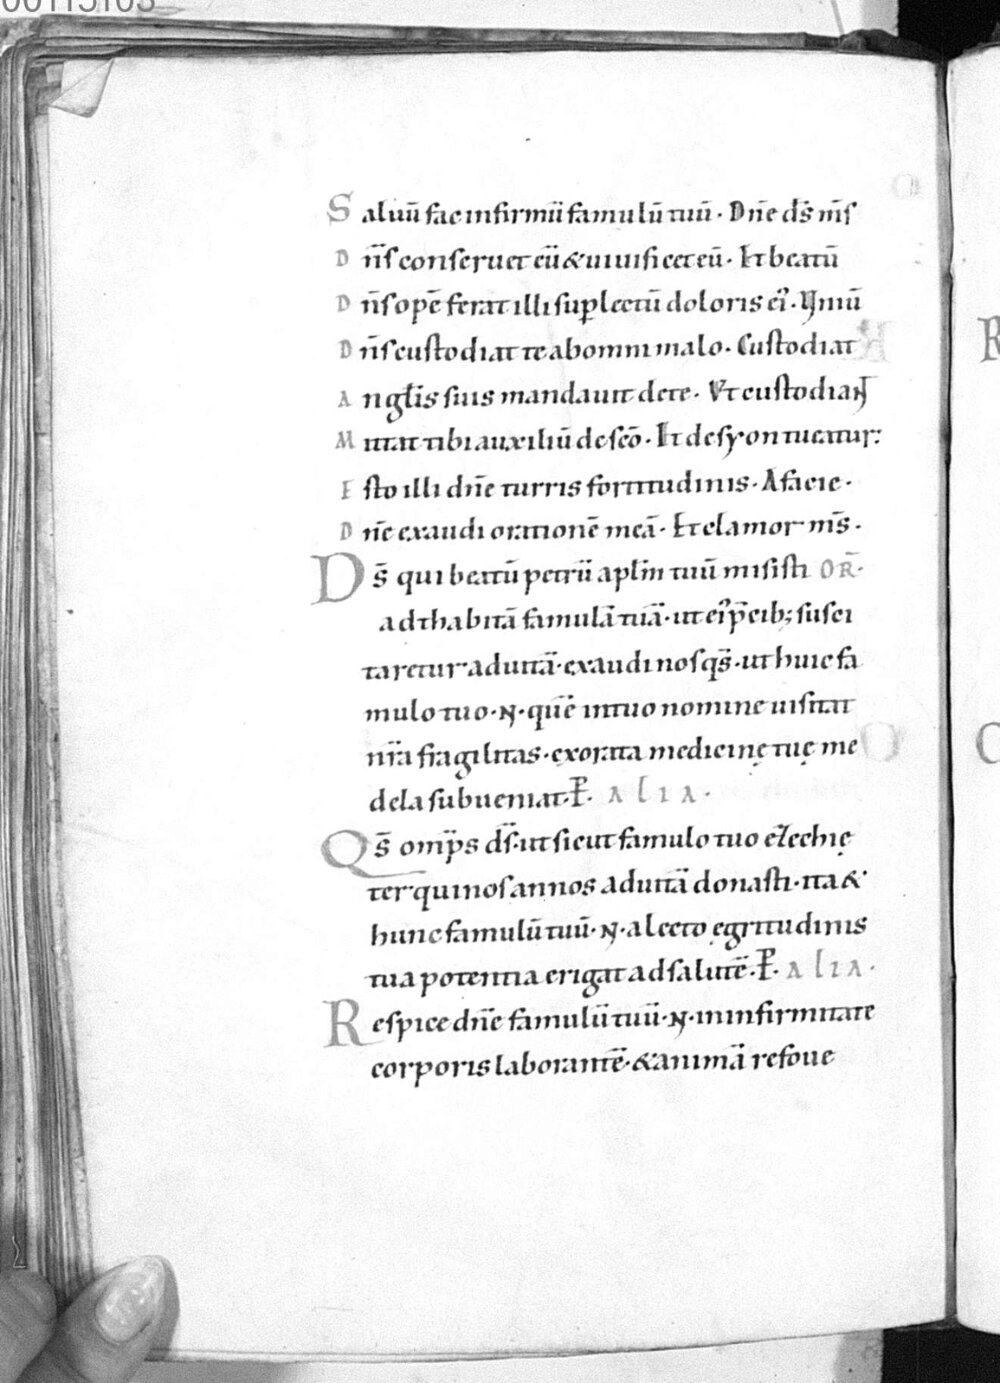 00115103
Saluū fac infirmū famulū tuū· Dn̄e ds̄ ms̄
Dn̄s conseruet eū & uiuificet eū· Et beatū
Dn̄s opē ferat illi sup lectū doloris ei᷒· Vniū
Dn̄s custodiat te ab omni malo· Custodiat
Angl̄is suis mandauit de te· Vt custodiaN̄t
Mittat tibi auxiliū de sc̄o· Et de syon tueatur:
Esto illi dn̄e turris fortitudinis· A facie·
Dn̄e exaudi orationē meā· Et clamor ms̄·
Ds̄ qui beatū petrū apl̄m tuū misisti OR̄·
ad thabitā famulā tuā· ut ei᷒ p̄cib; susci
taretur ad uitā· exaudi nos qs̄· ut huic fa
mulo tuo· N· quē in tuo nomine uisitat
nr̄a fragilitas· exorata medicinę tuę me
dela subueniat· P̄· ALIA·
Qs̄ omp̄s ds̄· ut sicut famulo tuo ezechię
ter quinos annos ad uitā donasti· ita &
hunc famulū tuū· N· a lecto ęgritudinis
tua potentia erigat ad salutē· P̄· ALIA·
Respice dn̄e famulū tuū· N· in infirmitate
corporis laborantē· & animā refoue
R